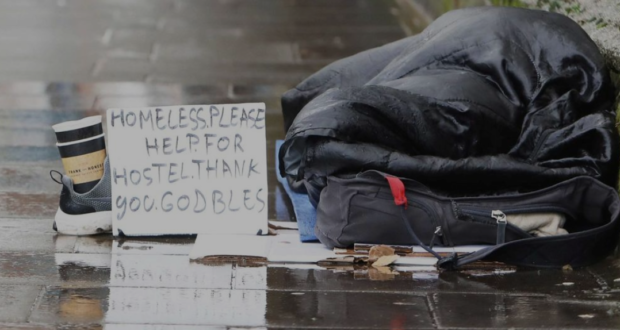 HOMELESS.PLEASE
HELP.FOR
HOSTEL.THANK
YOU.GODBLES